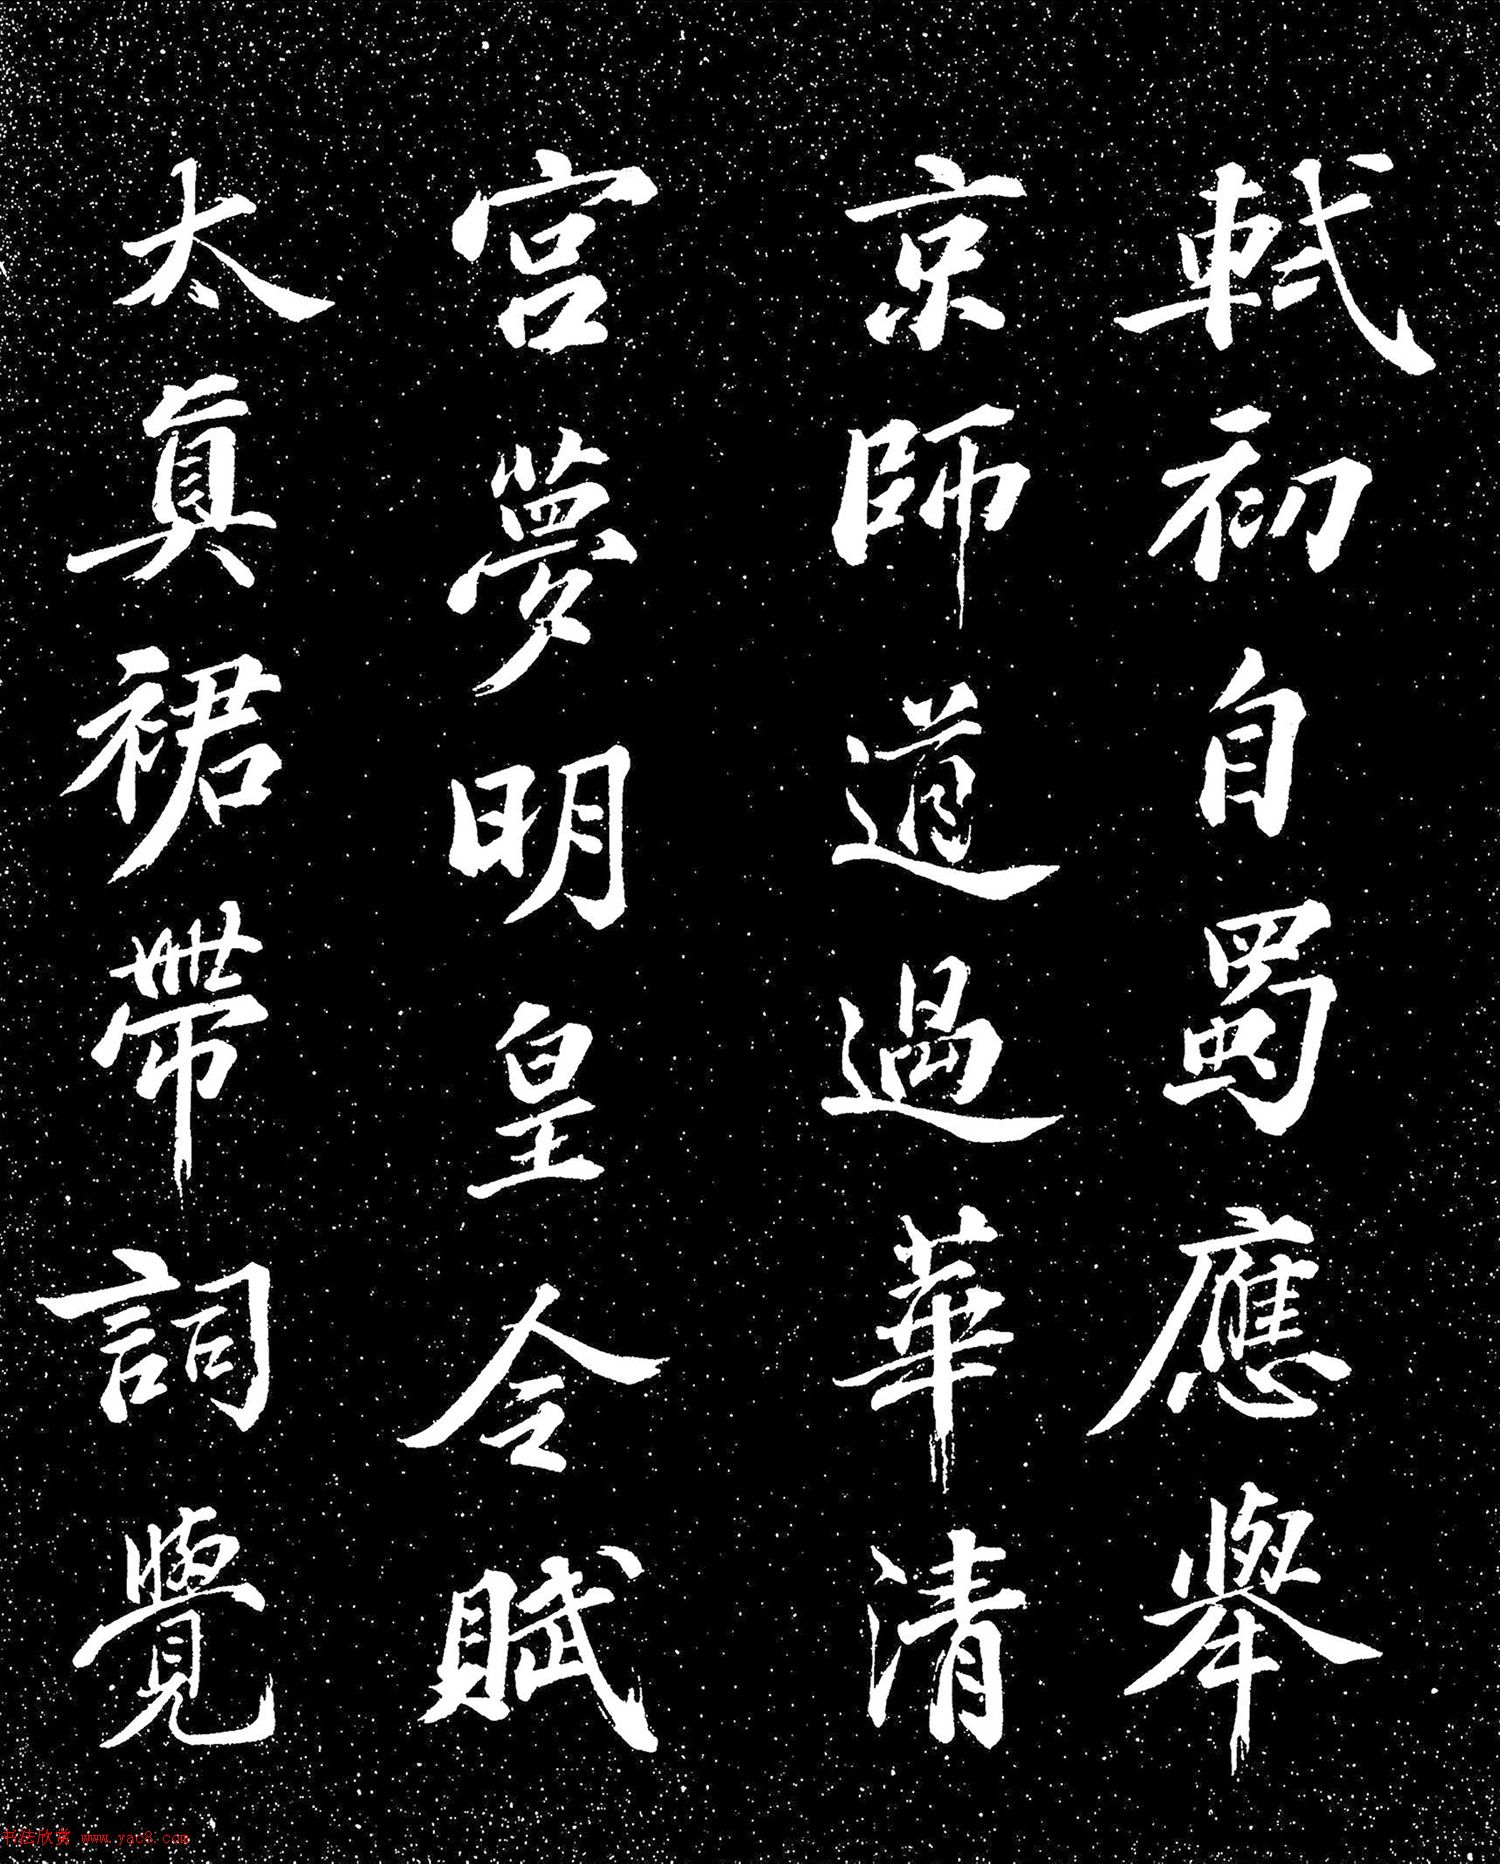 軾初自蜀應舉
京師道過華清
宮夢明皇令賦
太真裙帶詞覺
书法欣赏 www.yac8.com